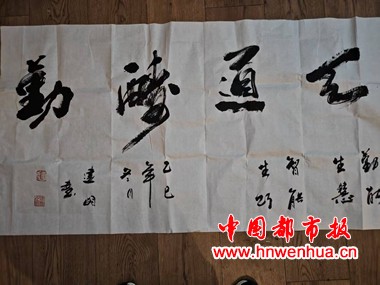 天道酬勤
勤能
生慧
智能
生巧
乙巳
年
冬月
建明
书
中国都市报
www.hnwenhua.cn